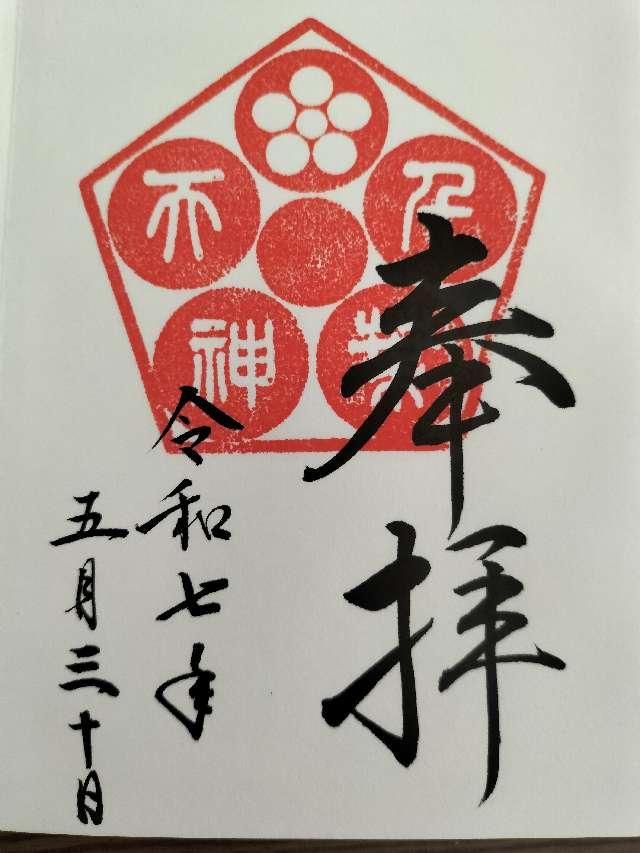 奉拝
天神
令和七年
五月三十日